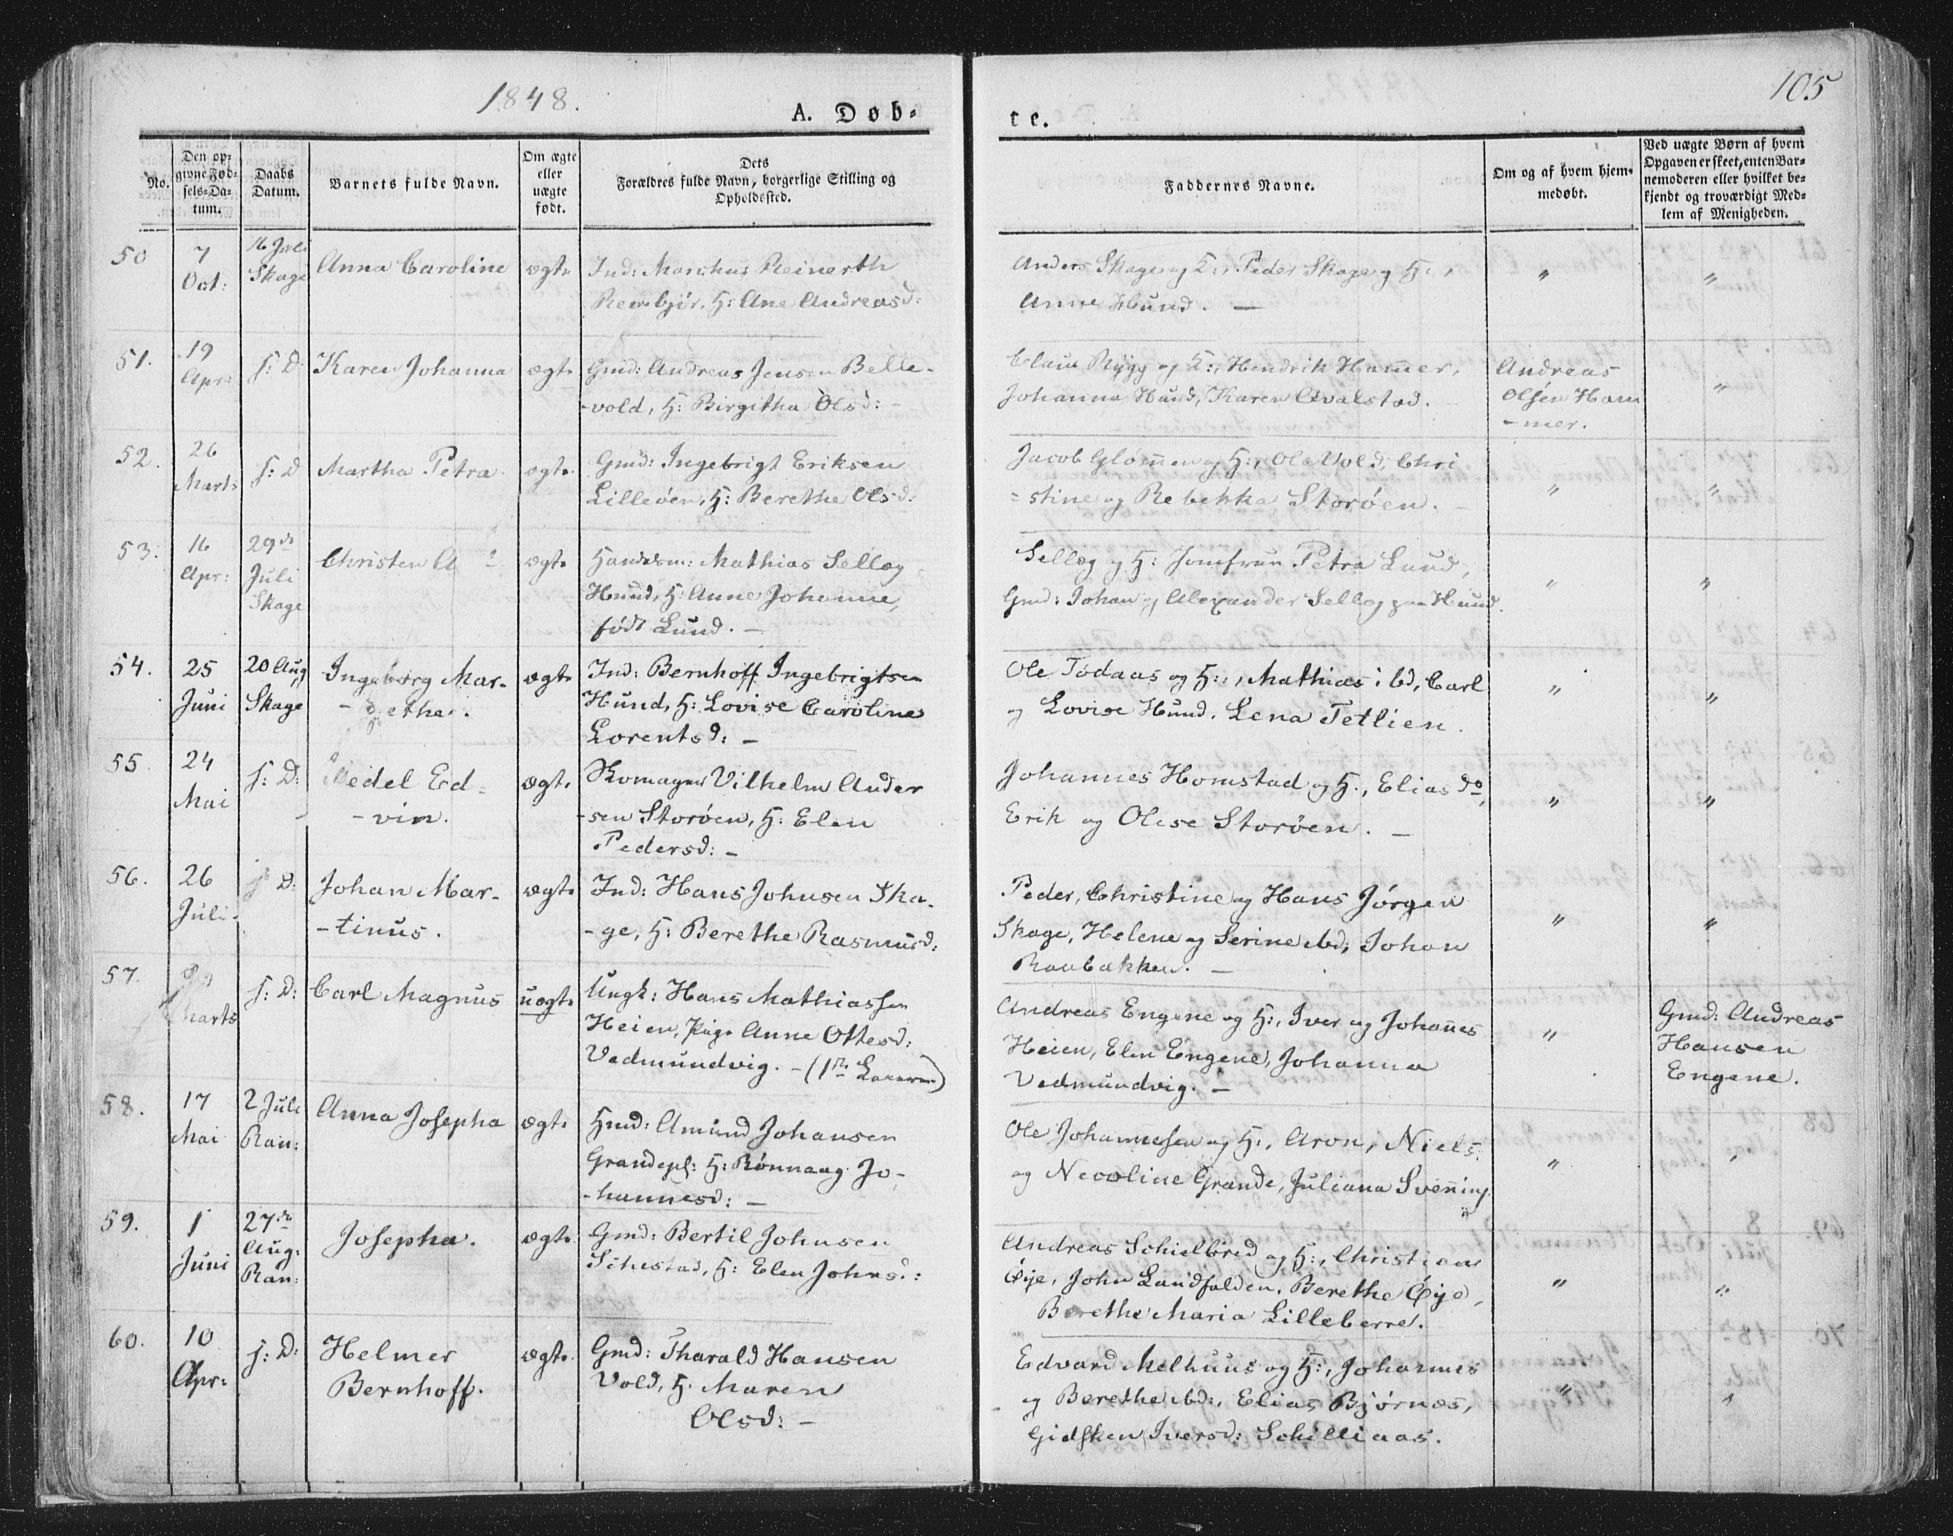 1848.
A. Døb-
te.
105
No.
Den op-
givne Fød-
sels-Da-
tum.
Daabs
Datum.
Barnets fulde Navn.
Om ægte
eller
uægte
født.
Dets
Forældres fulde Navn, borgerlige Stilling og
Opholdssted.
Faddernes Navne.
Om og af hvem hjem-
medøbt.
Ved uægte Børn af hvem
Opgaven er skeet, enten Bar-
nemoderen eller hvilket be-
kjendt og troværdigt Med-
lem af Menigheden.
50
7
Oct:
16 Juli
Skage
Anna Caroline
ægte
Ind: Marchus Reinerth
H: Ane Andreasd:
Anders Skage og H:, Peder Skage og H:,
Anne Hund. —
"
"
51.
19
Apr:
s: D:
Karen Johanna
ægte
Gmd: Andreas Jensen Belle-
-vold, H: Birgitha Olsd: -
Claus Rygg og H:, Hendrik Hammer,
Johanna Hund, Karen Qvalstad.
Andreas
Olsen Ham
-mer.
"
52.
26
Marts
s: D
Martha Petra
ægte
Gmd: Ingebrigt Eriksen
Lilleøen, H: Berethe Olsd:
Jacob Glømmen og H:, Ole Vold, Chri
=stine og Rebekka Storøen. -
"
"
53.
16
Apr:
29de
Juli
Skage
Christen
ægte
Handelsm: Mathias Sellæg
Hund, H: Anne Johanne,
født Lund. —
Sellæg og H: Jomfrue Petra Lund,
Gmd: Johan og Alexander Sellæg paa Hund.
"
"
54.
25
Juni
20 Aug
Skage
Ingeborg Mar-
-gethe.
ægte
Ind: Bernhoff Ingebrigtsen
Hund, H: Lovise Caroline
Lorentsd: —
Ole Tødaas og H:, Mathias ibd, Carl
og Lovise Hund, Lena Tetlien.
"
"
55.
24
Mai
s: D:
Wedel Ed-
-vin.
ægte
Skomager Vilhelm Ander
-sen Storøen, H: Elen
Pedersd: -
Johannes Homstad og H:, Elias do,
Erik og Olise Storøen. —
"
"
56.
26
Juli
s: D:
Johan Mar-
-tinus.
ægte
Ind: Hans Johnsen Ska-
-ge, H: Berethe Rasmusd:
Peder, Christine og Hans Jørgen
Skage, Helene og Serine ibd, Johan
Raubakken. —
"
"
57.
Marts
s: D:
Carl Magnus
uægte
Ungk: Hans Mathiassen
Heien, Pige Anne Ottesd:
Vedmundvig. - (1ste Leierm)
Andreas Engene og H:, Iver og Johannes
Heien, Elen Engene, Johanna
Vedmundvig. —
"
Gmd: Andreas
Hansen
Engene.
58.
17
Mai
2 Juli
Ran:
Anna Josepha
ægte
Hmd: Amund Johansen
Grandepl: H: Rønnaug Jo-
-hannesd: —
Ole Johannesen og H:, Aron, Niels
og Nicoline Grande, Juliana Svenning
"
"
59.
1
Juni
27de
Aug:
Ran:
Josepha.
ægte
Gmd: Bertil Johnsen
H: Elen Johnsd:
Andreas Schielbred og H:, Christian
Øye, John Landfalden, Berethe Øye,
Berethe Maria Lilleberre.
"
"
60.
10
Apr:
s: D:
Helmer
Bernhoff.
ægte
Gmd: Tharald Hansen
Vold, H. Maren
Olsd: —
Edvard Melhuus og H:, Johannes
og Berethe ibd:, Elias Bjørnæs,
Gidsken Iversd: Schilliaas.
"
"